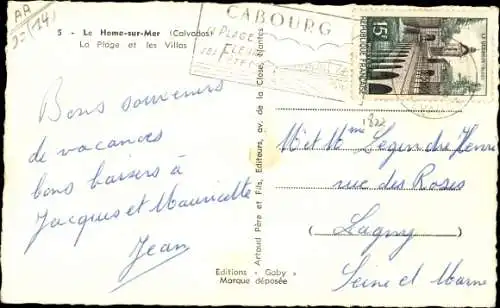 AA
5 - Le Home-sur-Mer (Calvados)
La Plage et les Villas
CABOURG
SA PLAGE
15F
REPUBLIQUE FRANÇAISE
1822
Bons souvenirs
de vacances
bons baisers à
Jacques et Mauricette
Jean
Artaud Père et Fils, Editeurs, av. de la Close, Nantes
Editions "Gaby"
Marque déposée
M et Mme Legendre Henri
rue des Roses
Lagny
(
)
Seine et Marne